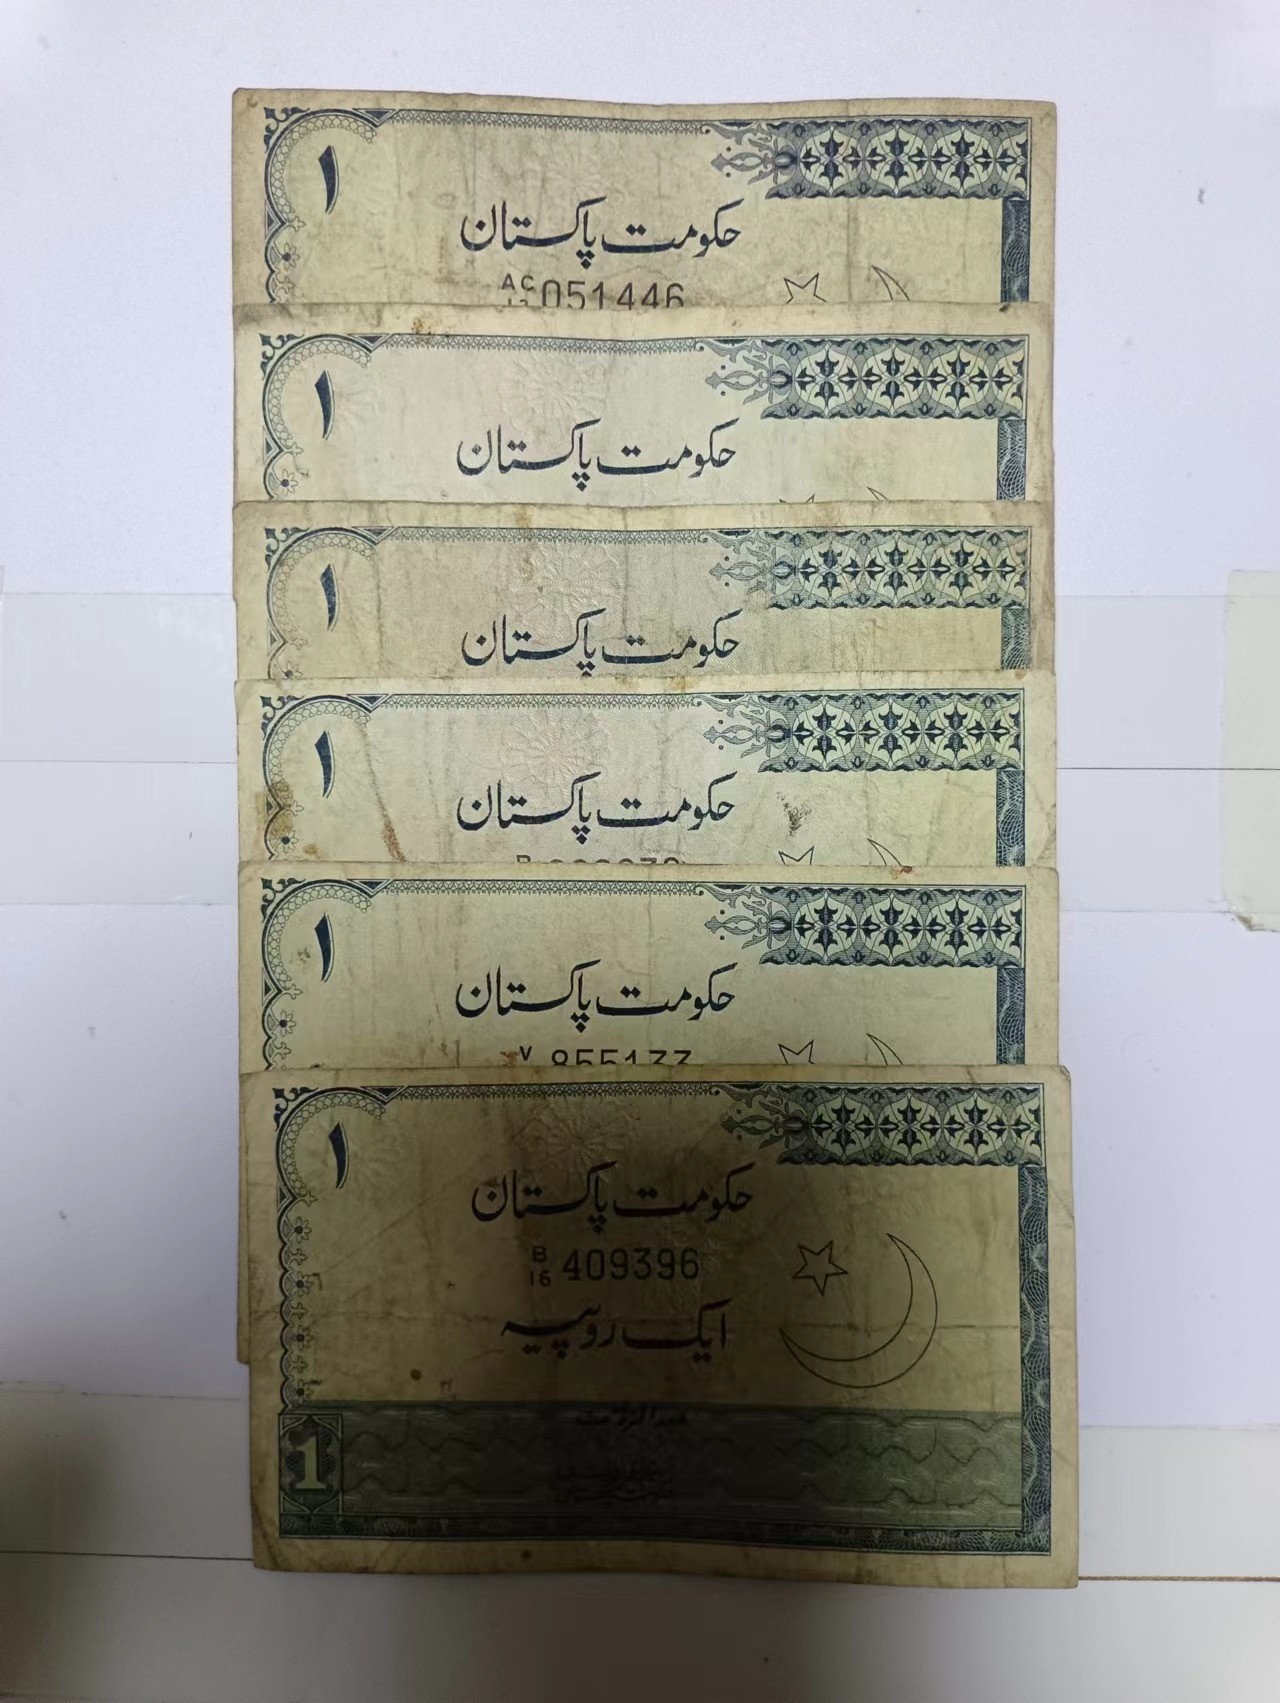 ۱
حکومت پاکستان
AC 051446
۱
حکومت پاکستان
۱
حکومت پاکستان
۱
حکومت پاکستان
۱
حکومت پاکستان
V 855133
۱
حکومت پاکستان
B/16 409396
ایک روپیہ
1